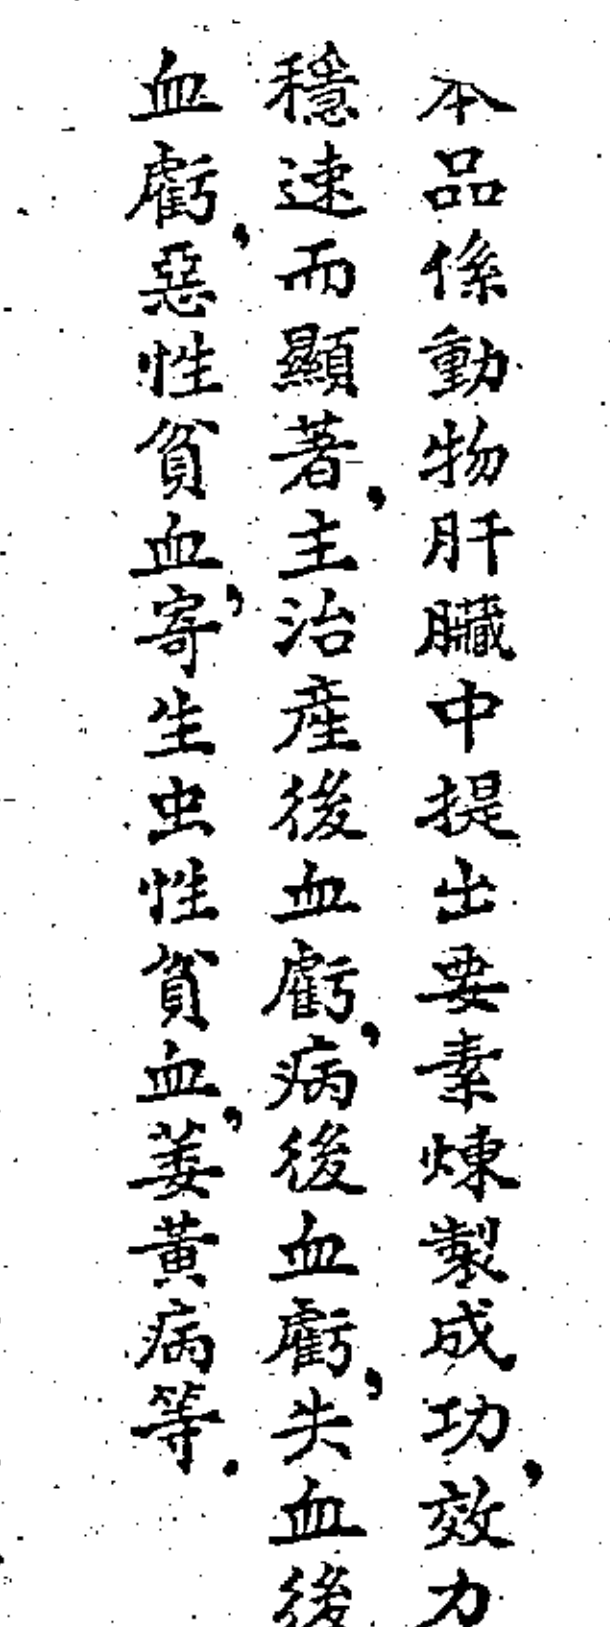 本品係動物肝臟中提出要素煉製成功,效力
穩速而顯著,主治產後血虧,病後血虧,失血後
血虧,惡性貧血,寄生虫性貧血,萎黃病等.